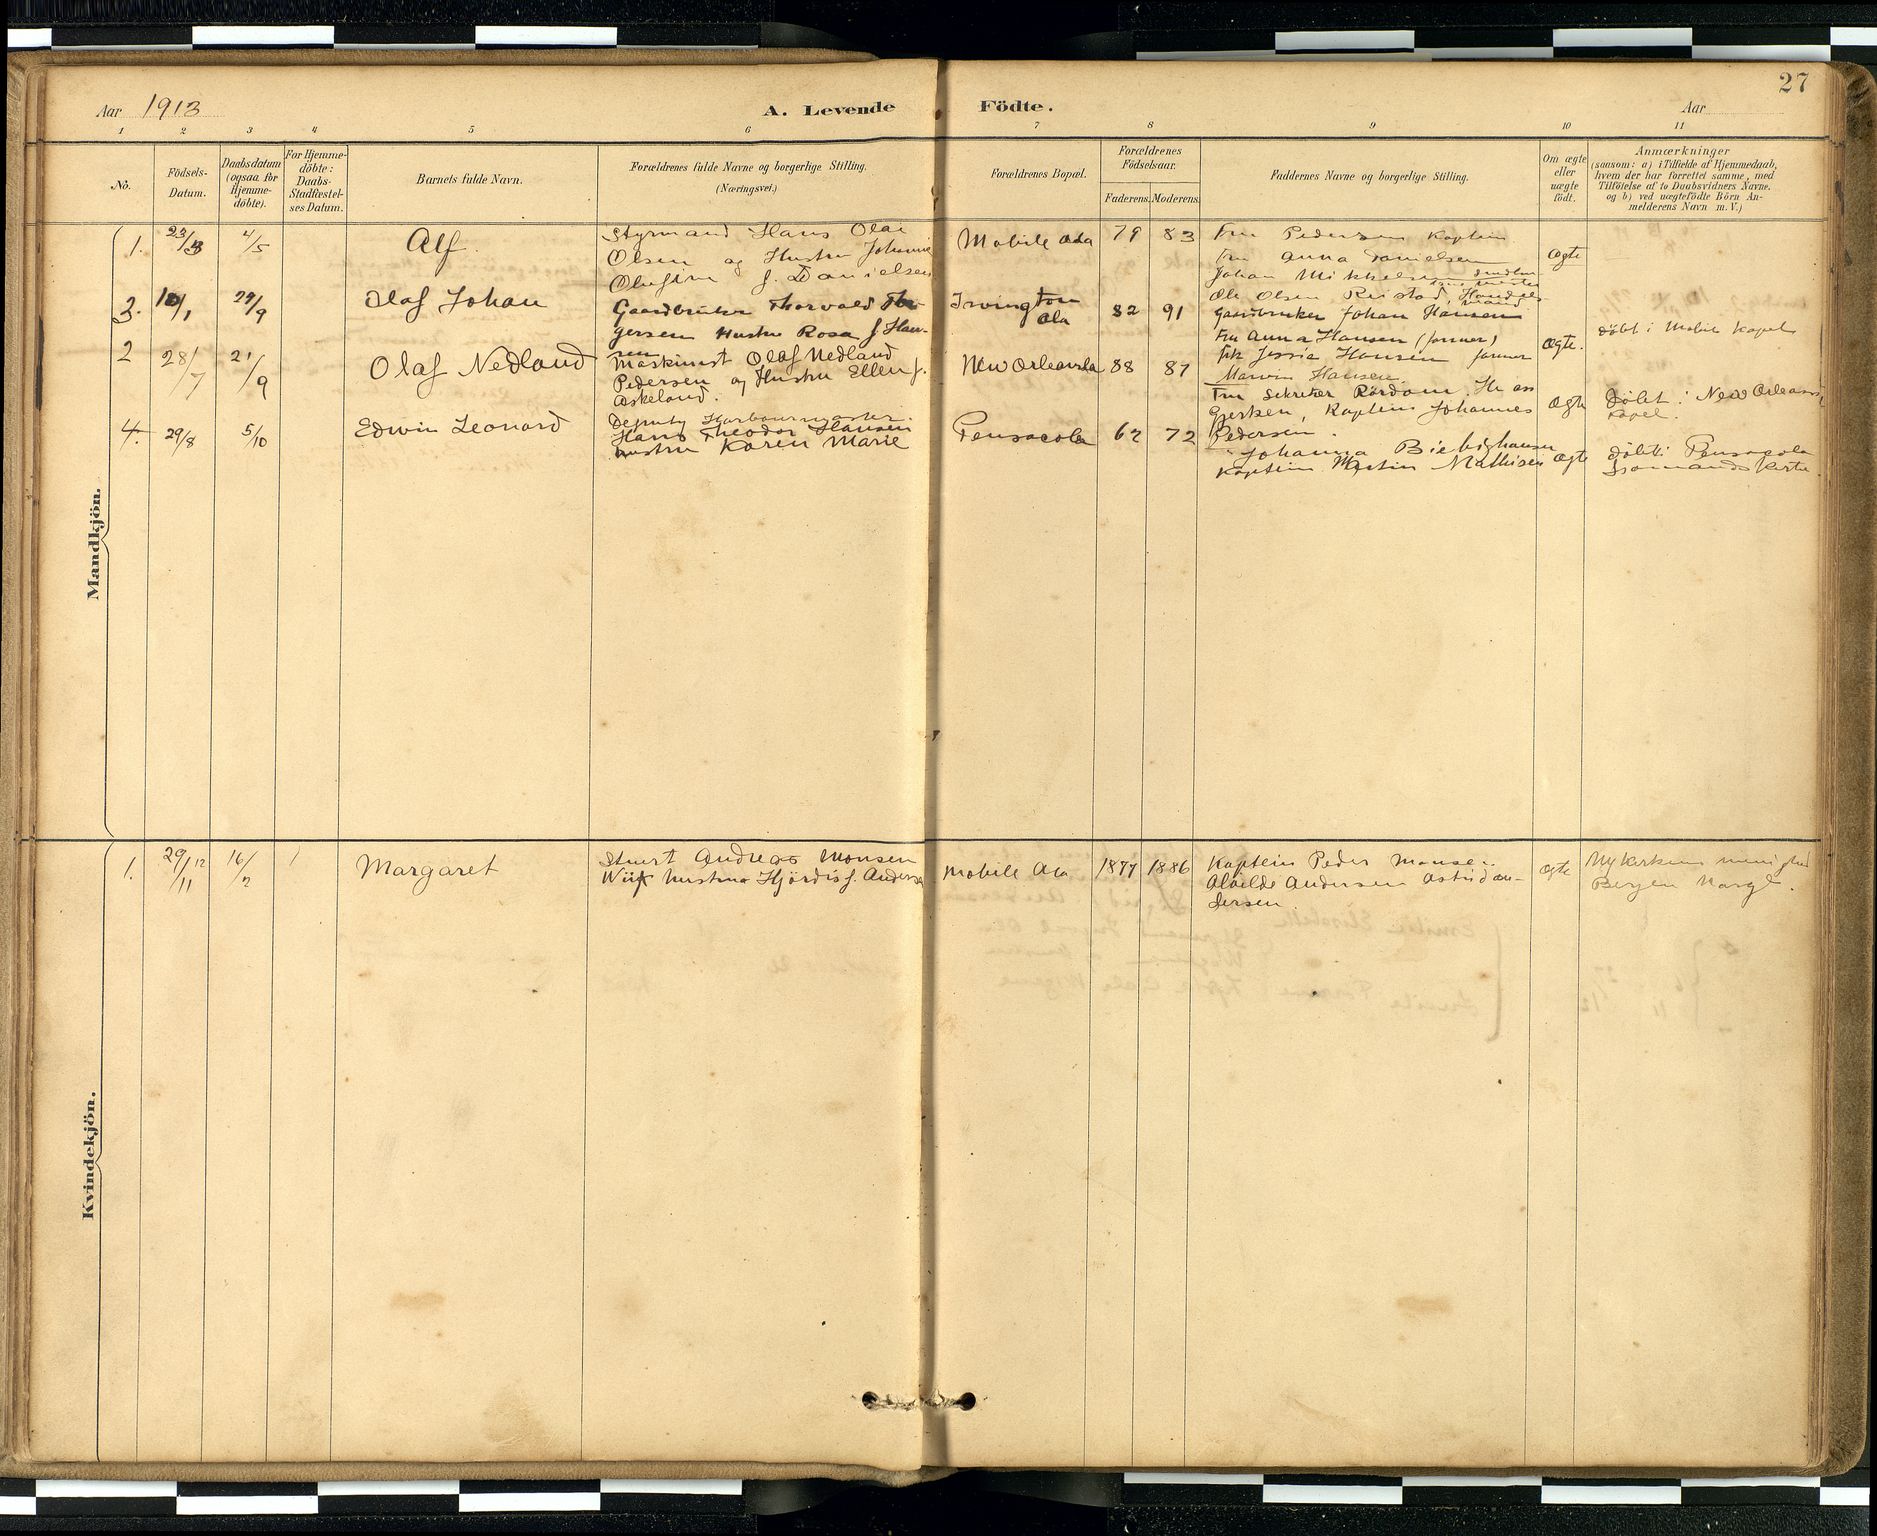 27
Aar 1913
A. Levende Födte.
Aar
1 2 3 4 5 6 7 8 9 10 11
No.
Födsels-
Datum.
Daabsdatum
(ogsaa for
Hjemme-
döbte).
For Hjemme-
döbte:
Daabs-
Stadfæstel-
ses Datum.
Barnets fulde Navn.
Forældrenes fulde Navne og borgerlige Stilling.
(Næringsvei.)
Forældrenes Bopæl.
Forældrenes
Födselsaar.
Faderens.
Moderens.
Faddernes Navne og borgerlige Stilling.
Om ægte
eller
uægte
födt.
Anmærkninger
(saasom: a) i Tilfælde af Hjemmedaab,
hvem der har forrettet samme, med
Tilföielse af to Daabsvidners Navne.
og b) ved uægtefödte Börn An-
melderens Navn m. V.)
Mandkjön.
1. 23/3 4/5 Alf.
Styrmand Hans Olai
Olsen og Hustru Johanne
Olufine f. Danielsen
Mobile Ala 79 83
Fru Pedersen Kaptein
Fru Anna Danielsen
Johan Mikkelsen
Ægte
3. 10/1 29/9 Olaf Johan
Gaardbruker Thorvald Thor-
gersen Hustru Rosa f. Han-
sen
Irvington
Ala
82 91
Ole Olsen Reistad, Handels
mand
Gaardbruker Johan Hansen
Fru Anna Hansen (farmer)
Frk Jessie Hansen farmer
Marvin Hansen
Ægte.
Döbt i Mobile Kapel
2 28/7 21/9 Olaf Nedland
Maskinist Olaf Nedland
Pedersen og Hustru Ellen f.
Askeland.
New Orleans La 88 87
Fru Sekretær Rördam. Hr
Gjertsen, Kaptein Johannes
Pedersen.
Ægte
Döbt i New Orleans
Kapel.
4. 29/8 5/10 Edwin Leonard
Deputy Harbourmaster
Hans Theodor Hansen
Hustru Karen Marie
Pensacola 62 72
Johanna
Kaptein Martin Mathisen
Ægte
döbt i Pensacola
Sjømands Kirke
Kvindekjön.
1. 29/11 12 16/2 1 Margaret
Stuert Andreas Monsen
Wiik Hustru Hjördis f. Andersen
Mobile Ala 1877 1886
Kaptein Peder Monsen
Alvilde Andersen Astrid An-
dersen.
Ægte
Nykirkens menighed
Bergen Norge.